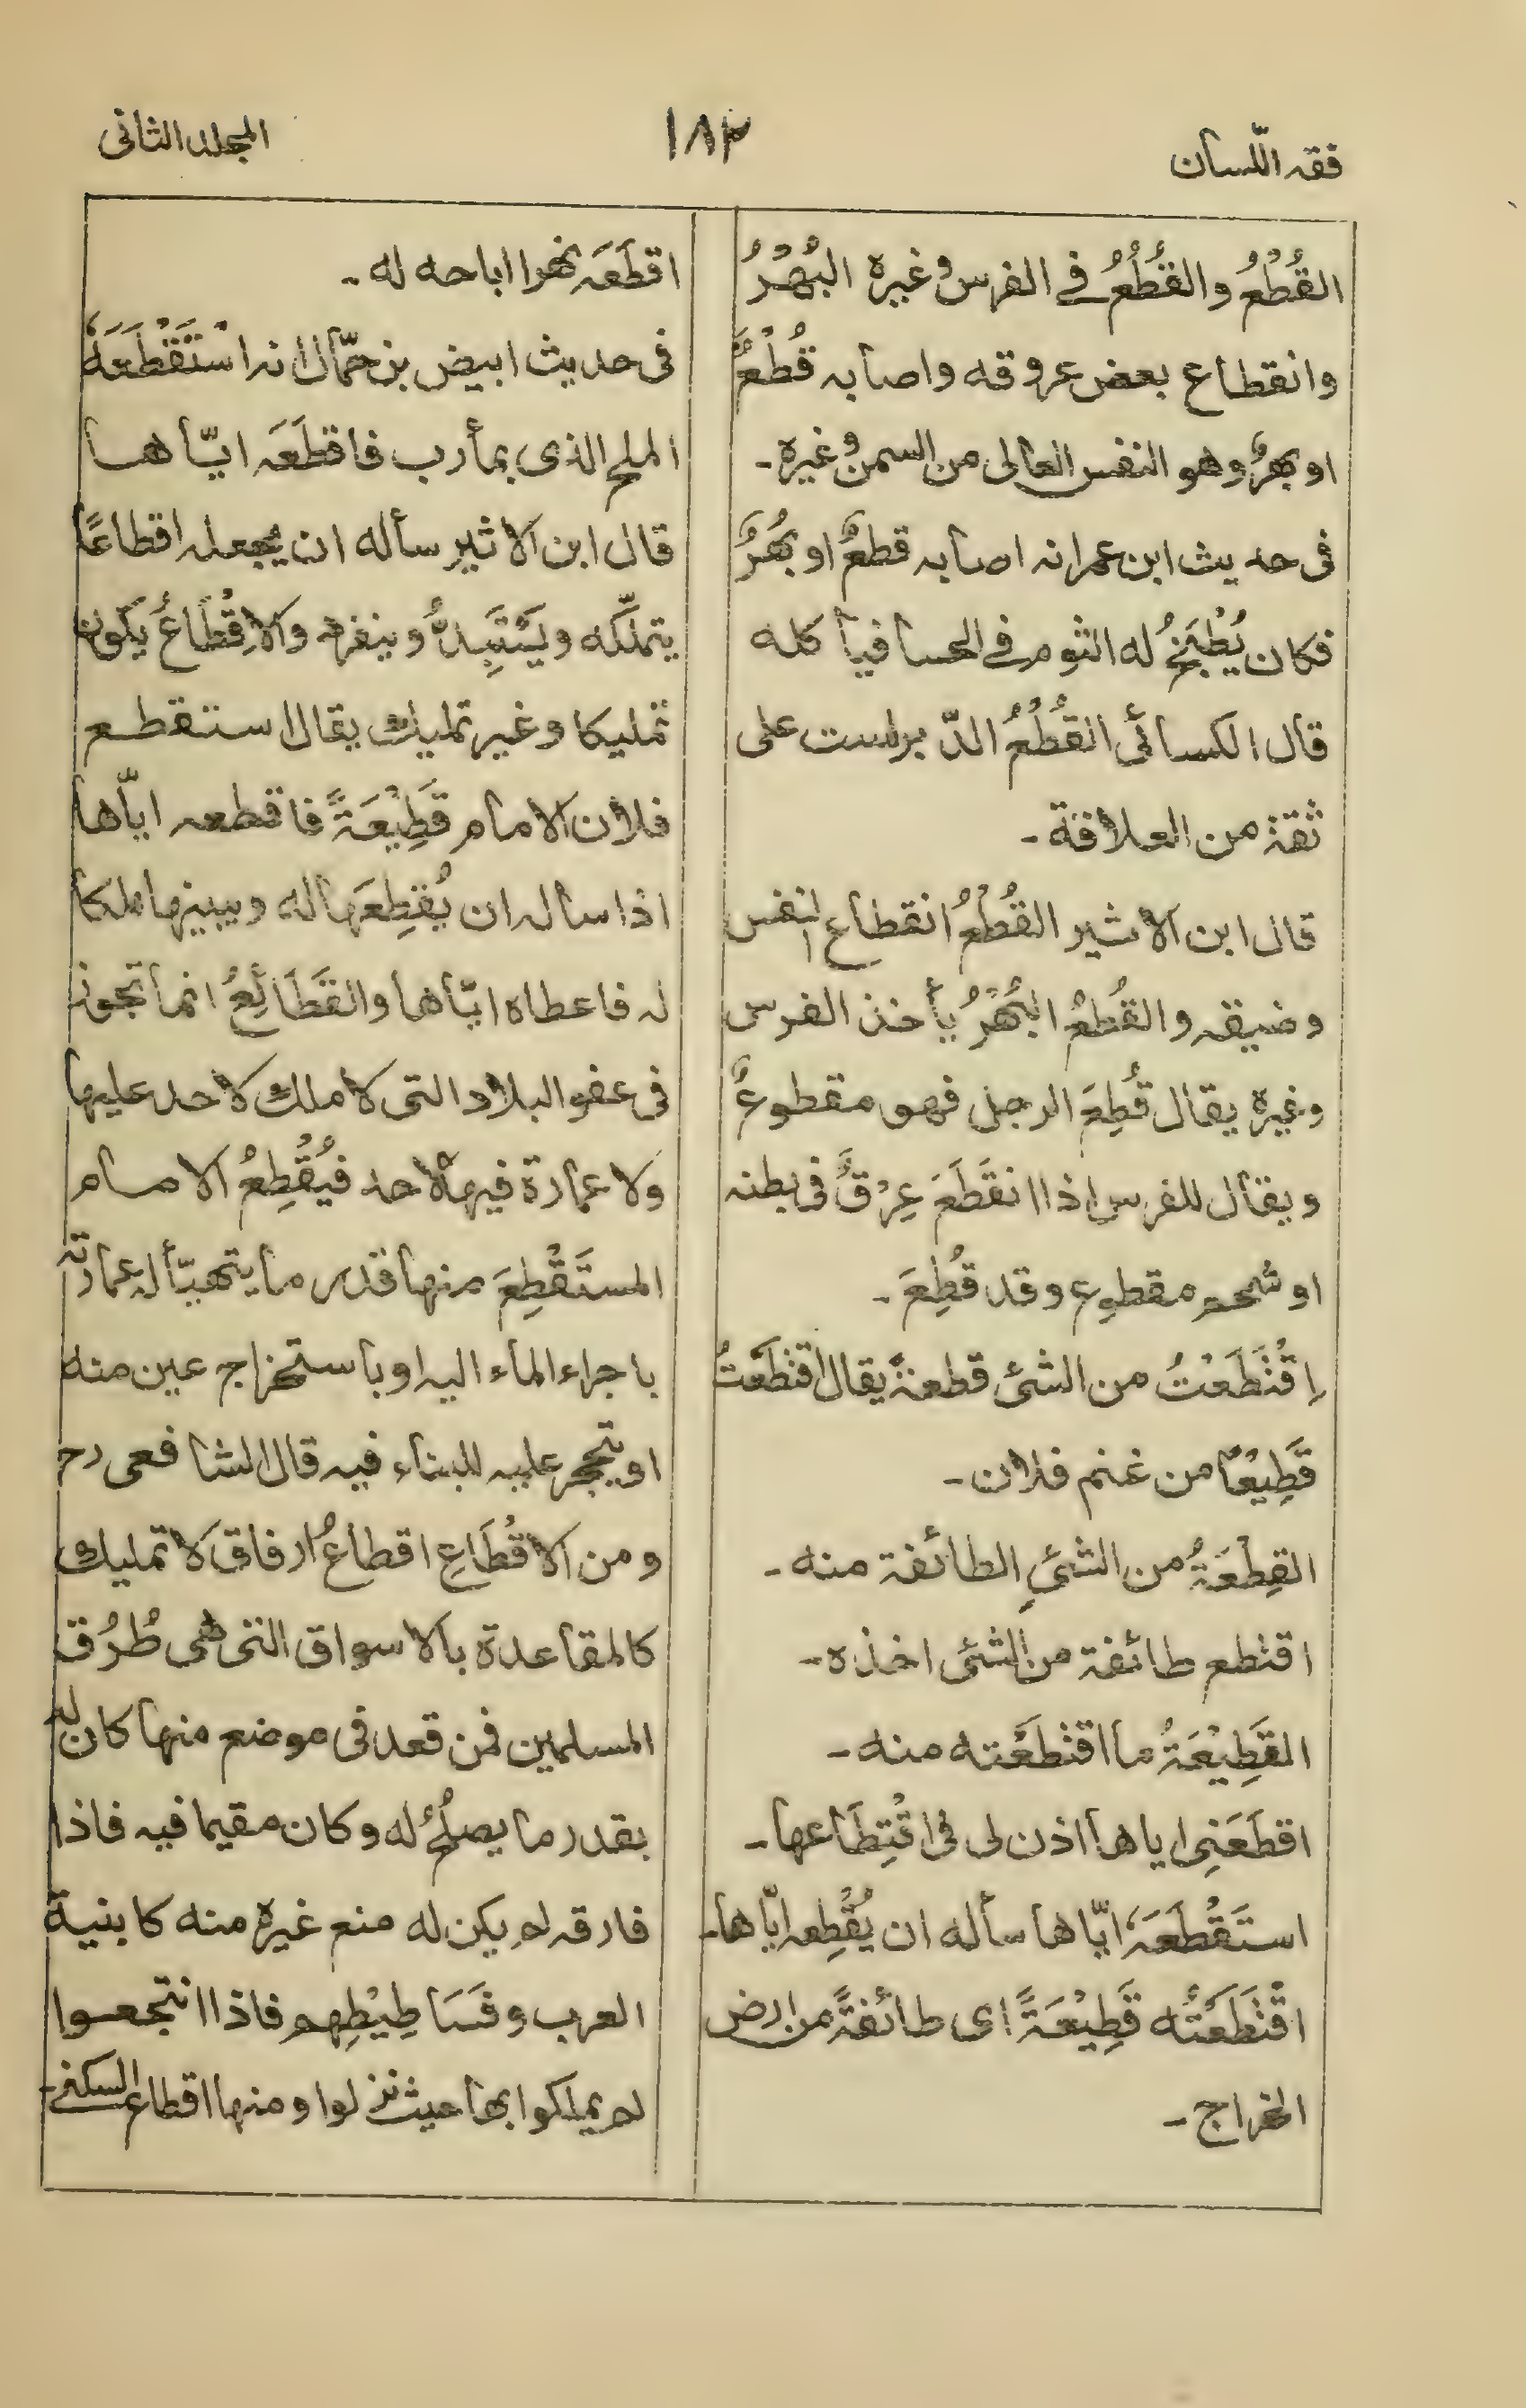 فقه اللّسان
١٨٢
المجلد الثانى
القُطْعُ والقُطُعُ فے الفرس وغيره البُهْرُ
وانقطاع بعض عروقه واصابه قُطْعٌ
او بهرٌ وهو النفس العالى من السمن وغيره ـ
فى حديث ابن عمر انه اصابه قطعٌ او بُهْرٌ
فكان يُطْبَخُ له الثوم فے الحسا فيأكله
قال الكسائى القُطْعُ الدّبر لست على
ثقة من العلاقة ـ
قال ابن الاثير القُطْعُ انقطاع النفس
وضيقه والقُطعُ البُهْرُ يأخذ الفرس
وغيره يقال قُطِعَ الرجل فهو مقطوعٌ
ويقال للفرس اذا انقَطَعَ عِرْقٌ فى بطنه
او شحم مقطوع وقد قُطِعَ ـ
اِقْتَطَعْتُ من الشئ قطعةً يقال اقتطَعْتُ
قَطِيْعًا من غنم فلان ـ
القِطْعَةُ من الشئِ الطائفة منه ـ
اقتطع طائفة من الشئ اخذه ـ
القَطِيْعَةُ ما اقتطَعْته منه ـ
اقطَعَنِى اياها اذن لى فى اقْتِطَاعها ـ
استَقْطَعَهٗ ايّاها سأله ان يُقْطِعه ايّاها ـ
اقْتَطَعْتُه قَطِيْعَةً اى طائفةً من ارض
الخراج ـ
اقطَعَه نهرا اباحه له ـ
فى حديث ابيض بن حمّال انه اسْتَقْطَعَهٗ
الملح الذى بمأرب فاقطَعَه ايّاها
قال ابن الاثير سأله ان يجعله اقطاعًا
يتملّكه ويَسْتَبِدُّ وينفرد والاِقْطَاعُ يكون
تمليكا وغير تمليك يقال استقطع
فلان الامام قَطِيْعَةً فاقطعه ايّاها
اذا ساله ان يُقطِعَها له ويبينها ملكا
له فاعطاه ايّاها والقَطَائِعُ انما تجوز
فى عفو البلاد التى لا ملك لاحد عليها
ولا عمارة فيها لاحد فيُقْطِعُ الامام
المستَقْطِعَ منها قدر ما يتهيّأ له عمارته
باجراء الماء اليه او باستخراج عين منه
او يتحجر عليه للبناء فيه قال الشافعى رح
ومن الاقْطَاعِ اقطاعُ ارفاق لا تمليك
كالمقاعدة بالاسواق التى هى طُرُق
المسلمين فمن قعد فى موضع منها كان له
بقدر ما يصلُحُ له وكان مقيما فيه فاذا
فارقه لم يكن له منع غيره منه كابنية
العرب وفَسَاطِيْطِهم فاذا انتجعوا
لم يملكوا بها حيث نزلوا ومنها اقطاع السكنے ـ